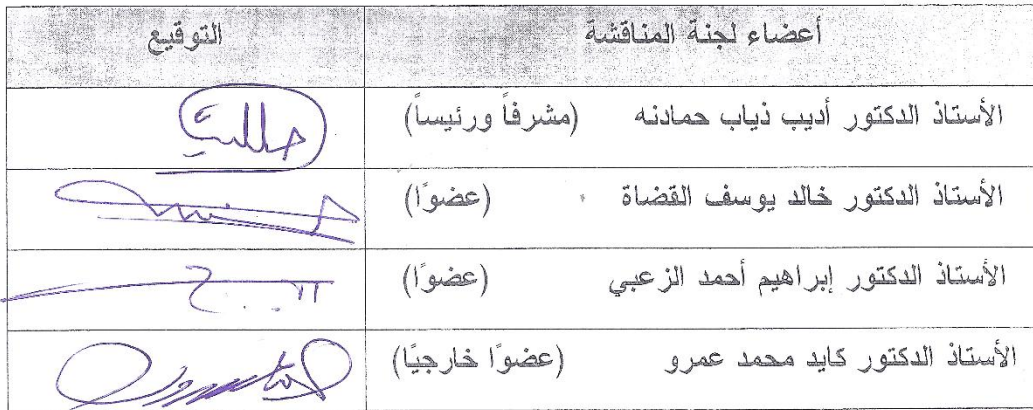 أعضاء لجنة المناقشة التوقيع
الأستاذ الدكتور أديب ذياب حمادنه (مشرفاً ورئيساً)
الأستاذ الدكتور خالد يوسف القضاة (عضوًا)
الأستاذ الدكتور إبراهيم أحمد الزعبي (عضوًا)
الأستاذ الدكتور كايد محمد عمرو (عضوًا خارجيًا)